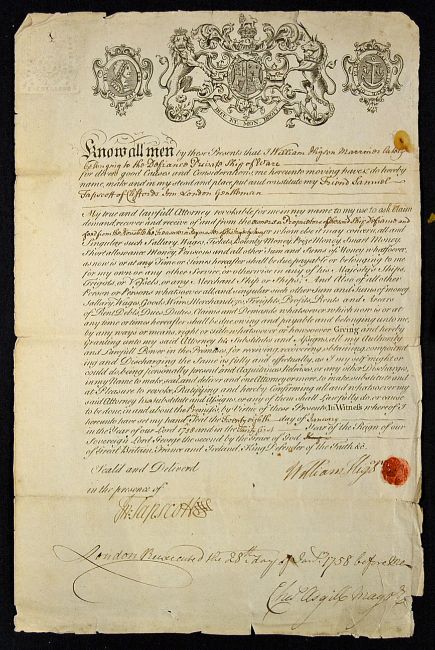 DIEU ET MON DROIT
Know all men by these Presents that I William Higson Marriner Lately
belonging to the Defiance Private Ship of Warr
for divers good Causes and Considerations me hereunto moving have, do hereby
name, make and in my stead and place put and constitute my Friend Samuel
Tapscott of Cliffords Inn London Gentleman
My true and lawful Attorney revokable for me in my name & to my use to ask Claim
demand recover and receive of and from the Owners or Proprietors of the said Ship Defiance and
also from the Honoble the Treasurer
whom else it may concern, all and
Singular such Sallary, Wages, Tickets, Bounty Money, Prize Money, Smart Money,
Short allowance Money, Pensions and all other Sum and Sums of Money whatsoever,
as now is or at any Time or times hereafter shall be due, payable or belonging to me
for my own or any other Service, or otherwise in any of his Majesty's Ships,
Frigots, or Vessels, or any Merchant Ship or Ships; And Also of all other
Person or Persons whatsoever, all and singular such other Sum and Sums of money,
Sallary, Wages, Goods, Ware, Merchandize, Freights, Profits, Rents and Arears
of Rent, Debts, Dues, Duties, Claims and Demands whatsoever which now is or at
any time or times hereafter shall be due, owing and payable and belonging unto me,
by any ways or means, right or title whatsoever or howsoever Giving and hereby
Granting unto my said Attorney his Substitute and Assigns, all my Authority
and Lawfull Power in the Premises for receiving, recovering, obtaining, compounding
and Discharging the same as fully and effectually, as I my self might or
could do, being personally present and Acquittances, Releases, or any other Discharges,
in my Name to make, seal and deliver and one Attorney or more, to make, substitute and
at Pleasure to revoke, Ratifying and hereby Confirming all and whatsoever my
said Attorney his substitute and Assigns, or any of them shall Lawfully do, or cause
to be done, in and about the Premises, by Virtue of these Presents. In Witness whereof I
hereunto have set my hand & Seal the twenty eighth day of January
in the Year of our Lord 1758 and in the Thirty first Year of the Reign of our
Sovereign Lord George the second by the Grace of God
of Great Britain France and Ireland, King, Defender of the Faith &c.
Seald and Deliverd
in the presence of
William Higson
Tapscott
London Executed the 28th day of Jany. 1758 before Me
Chas. Asgill Mayor